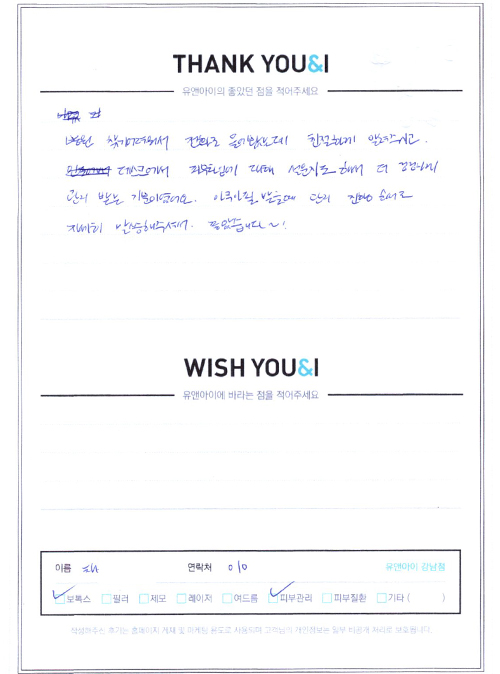 THANK YOU&I
유앤아이의 좋았던 점을 적어주세요
병원 찾기어려워서 전화로 물어봤는데 친절하게 알려주시고.
데스크에서 피부타입에 대해 설문지도 해서 더
관리 받는 기분이였어요. 아쿠아필 받을때 관리 진행 순서로
자세히 말씀해주셔서. 좋았습니다~!
WISH YOU&I
유앤아이에 바라는 점을 적어주세요
이름 연락처 010 유앤아이 강남점
보톡스 필러 제모 레이저 여드름 피부관리 피부질환 기타 ( )
작성해주신 후기는 홈페이지 게재 및 마케팅 용도로 사용되며 고객님의 개인정보는 일부 비공개 처리로 보호됩니다.